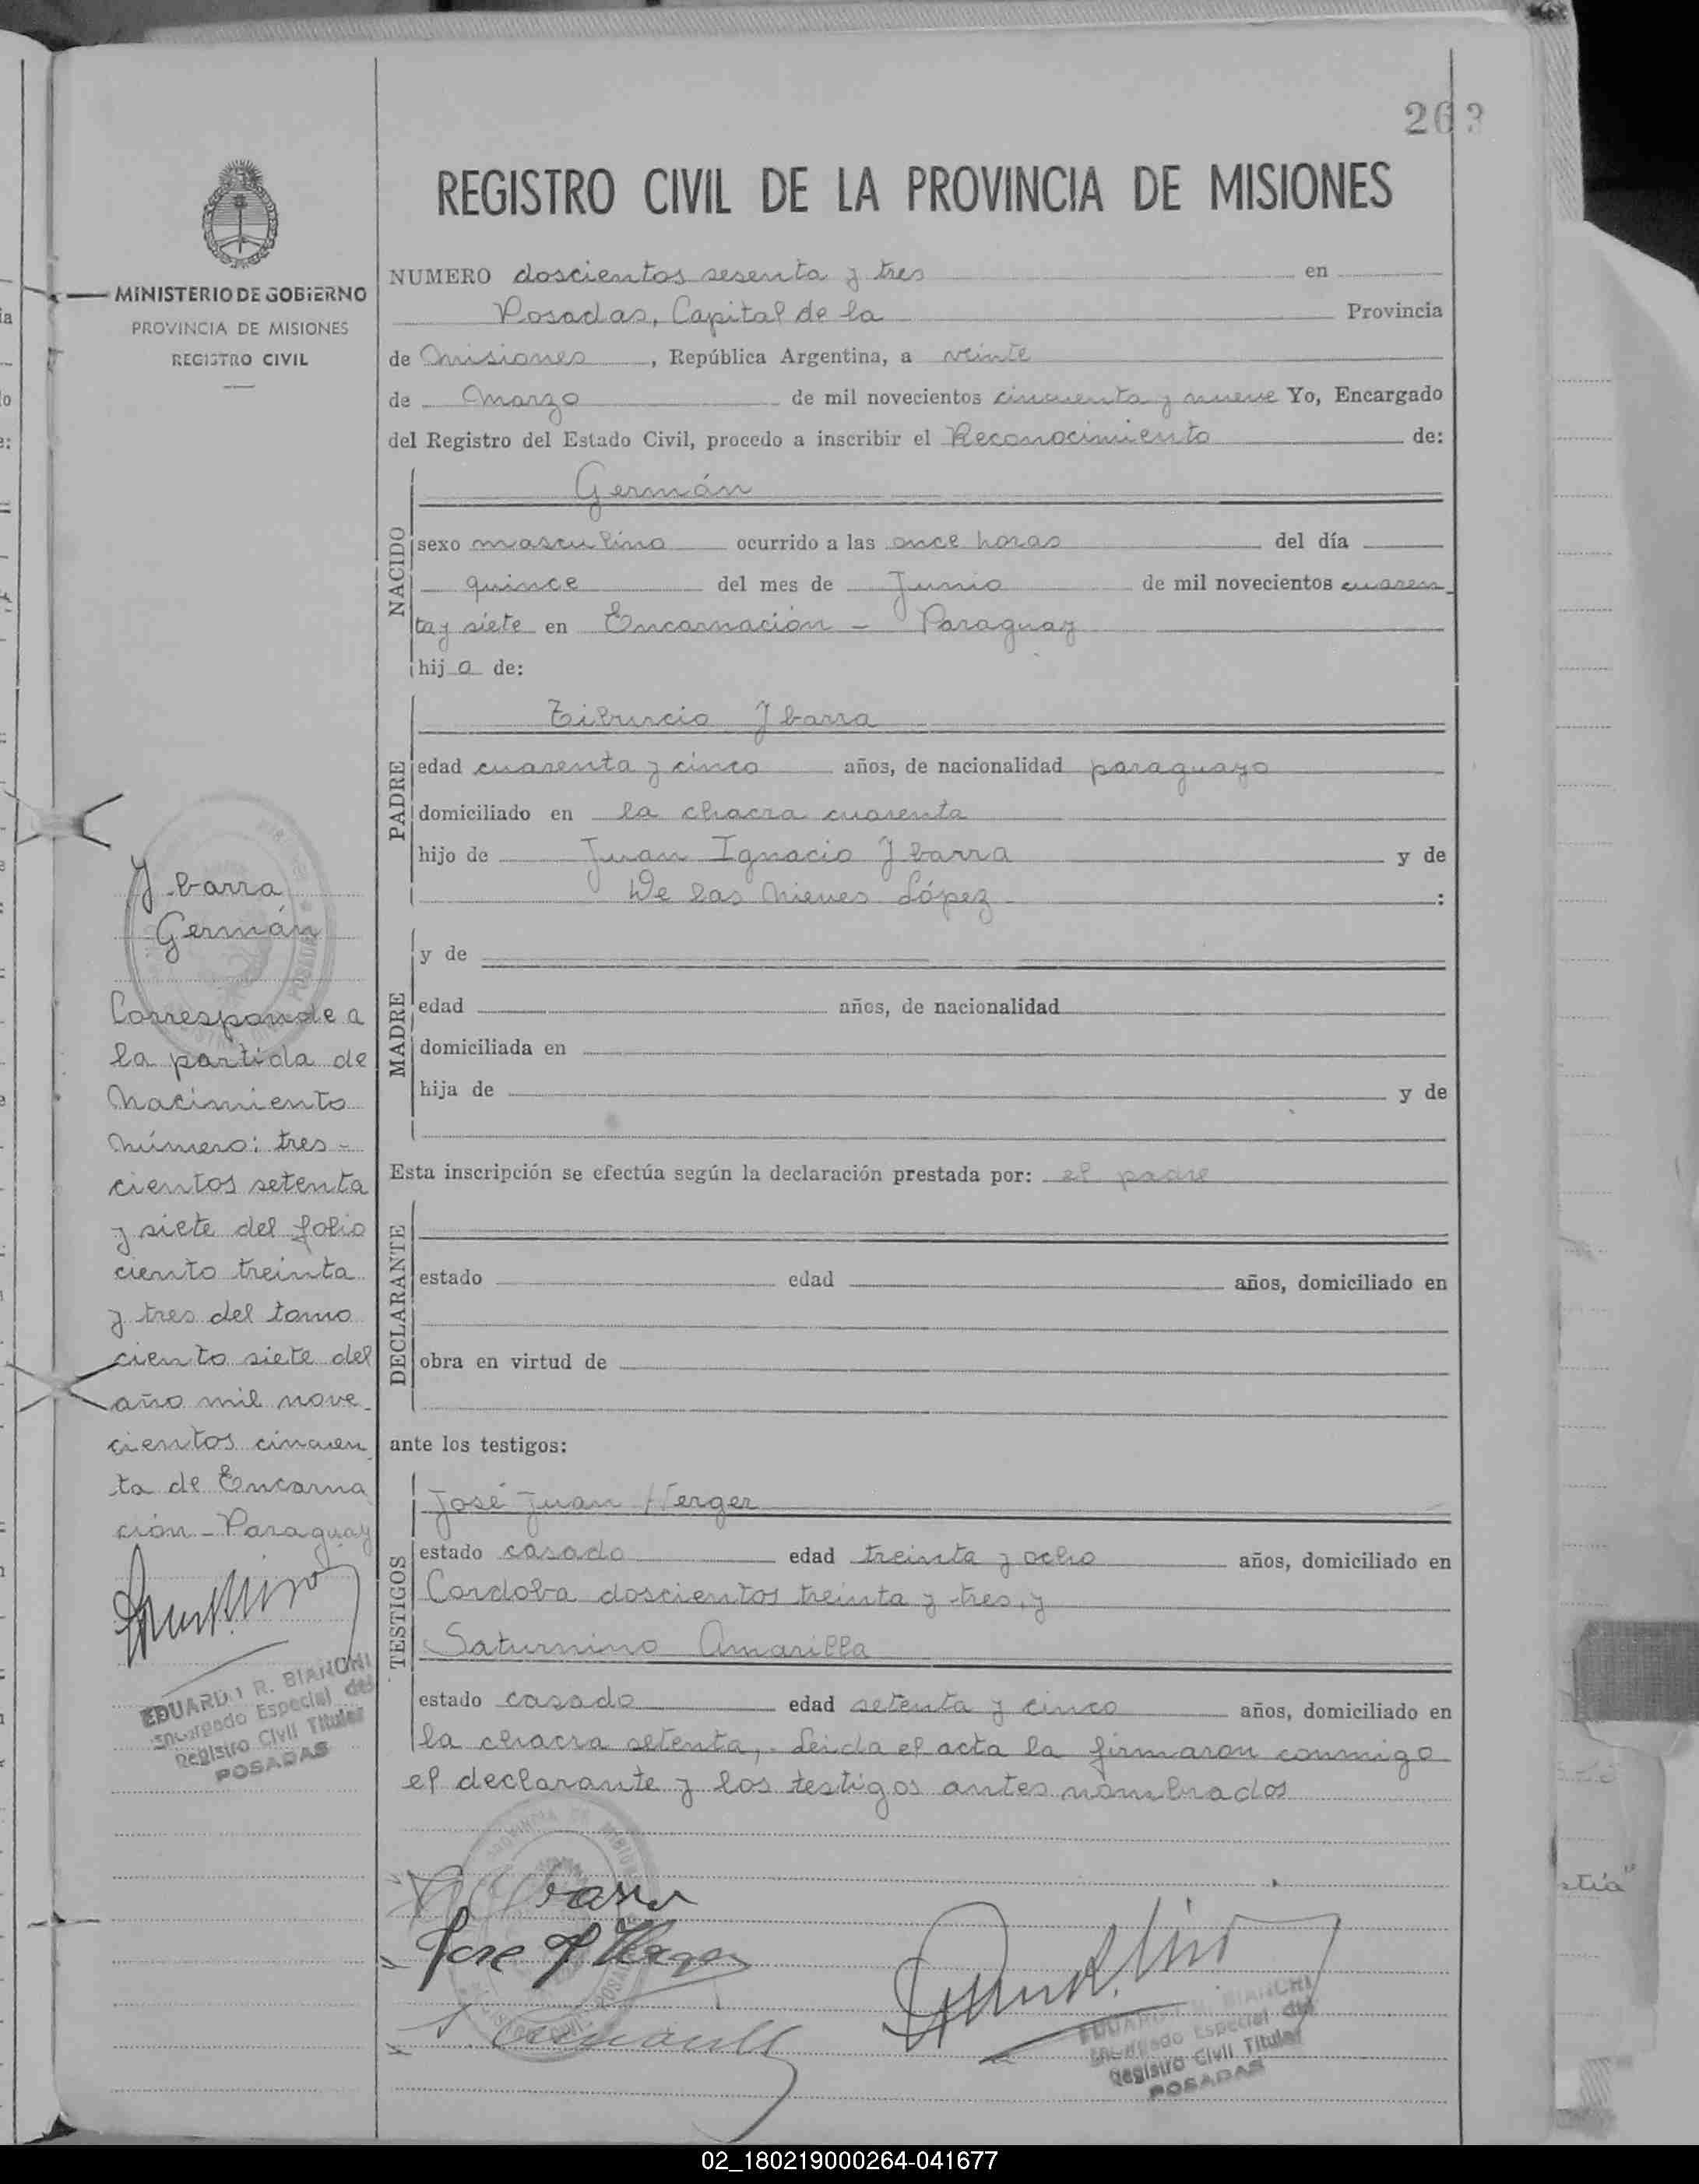 263
REGISTRO CIVIL DE LA PROVINCIA DE MISIONES
MINISTERIO DE GOBIERNO
PROVINCIA DE MISIONES
REGISTRO CIVIL
NUMERO doscientos sesenta y tres en
Posadas, Capital de la Provincia
de Misiones, República Argentina, a veinte
de Marzo de mil novecientos cincuenta y nueve Yo, Encargado
del Registro del Estado Civil, procedo a inscribir el Reconocimiento de:
NACIDO
Germán
sexo masculino ocurrido a las once horas del día
quince del mes de Junio de mil novecientos cuaren
ta y siete en Encarnación - Paraguay
hijo de:
PADRE
Tiburcio Ybarra
edad cuarenta y cinco años, de nacionalidad paraguayo
domiciliado en la chacra cuarenta
hijo de Juan Ignacio Ybarra y de
De las Nieves López :
MADRE
y de
edad años, de nacionalidad
domiciliada en
hija de y de
Esta inscripción se efectúa según la declaración prestada por: el padre
DECLARANTE
estado edad años, domiciliado en
obra en virtud de
ante los testigos:
TESTIGOS
José Juan Verger
estado casado edad treinta y ocho años, domiciliado en
Cordoba doscientos treinta y tres, y
Saturnino Amarilla
estado casado edad setenta y cinco años, domiciliado en
la chacra setenta,. Leida el acta la firmaron conmigo
el declarante y los testigos antes nombrados
Ybarra
Germán
Corresponde a
la partida de
Nacimiento
Número: tres-
cientos setenta
y siete del folio
ciento treinta
y tres del tomo
ciento siete del
año mil nove-
cientos cincuen
ta de Encarna
ción - Paraguay
EDUARDO R. BIANCHI
Encargado Especial del
Registro Civil Titular
POSADAS
Ybarra
Jose J Verger
EDUARDO R. BIANCHI
Encargado Especial del
Registro Civil Titular
POSADAS
02_180219000264-041677